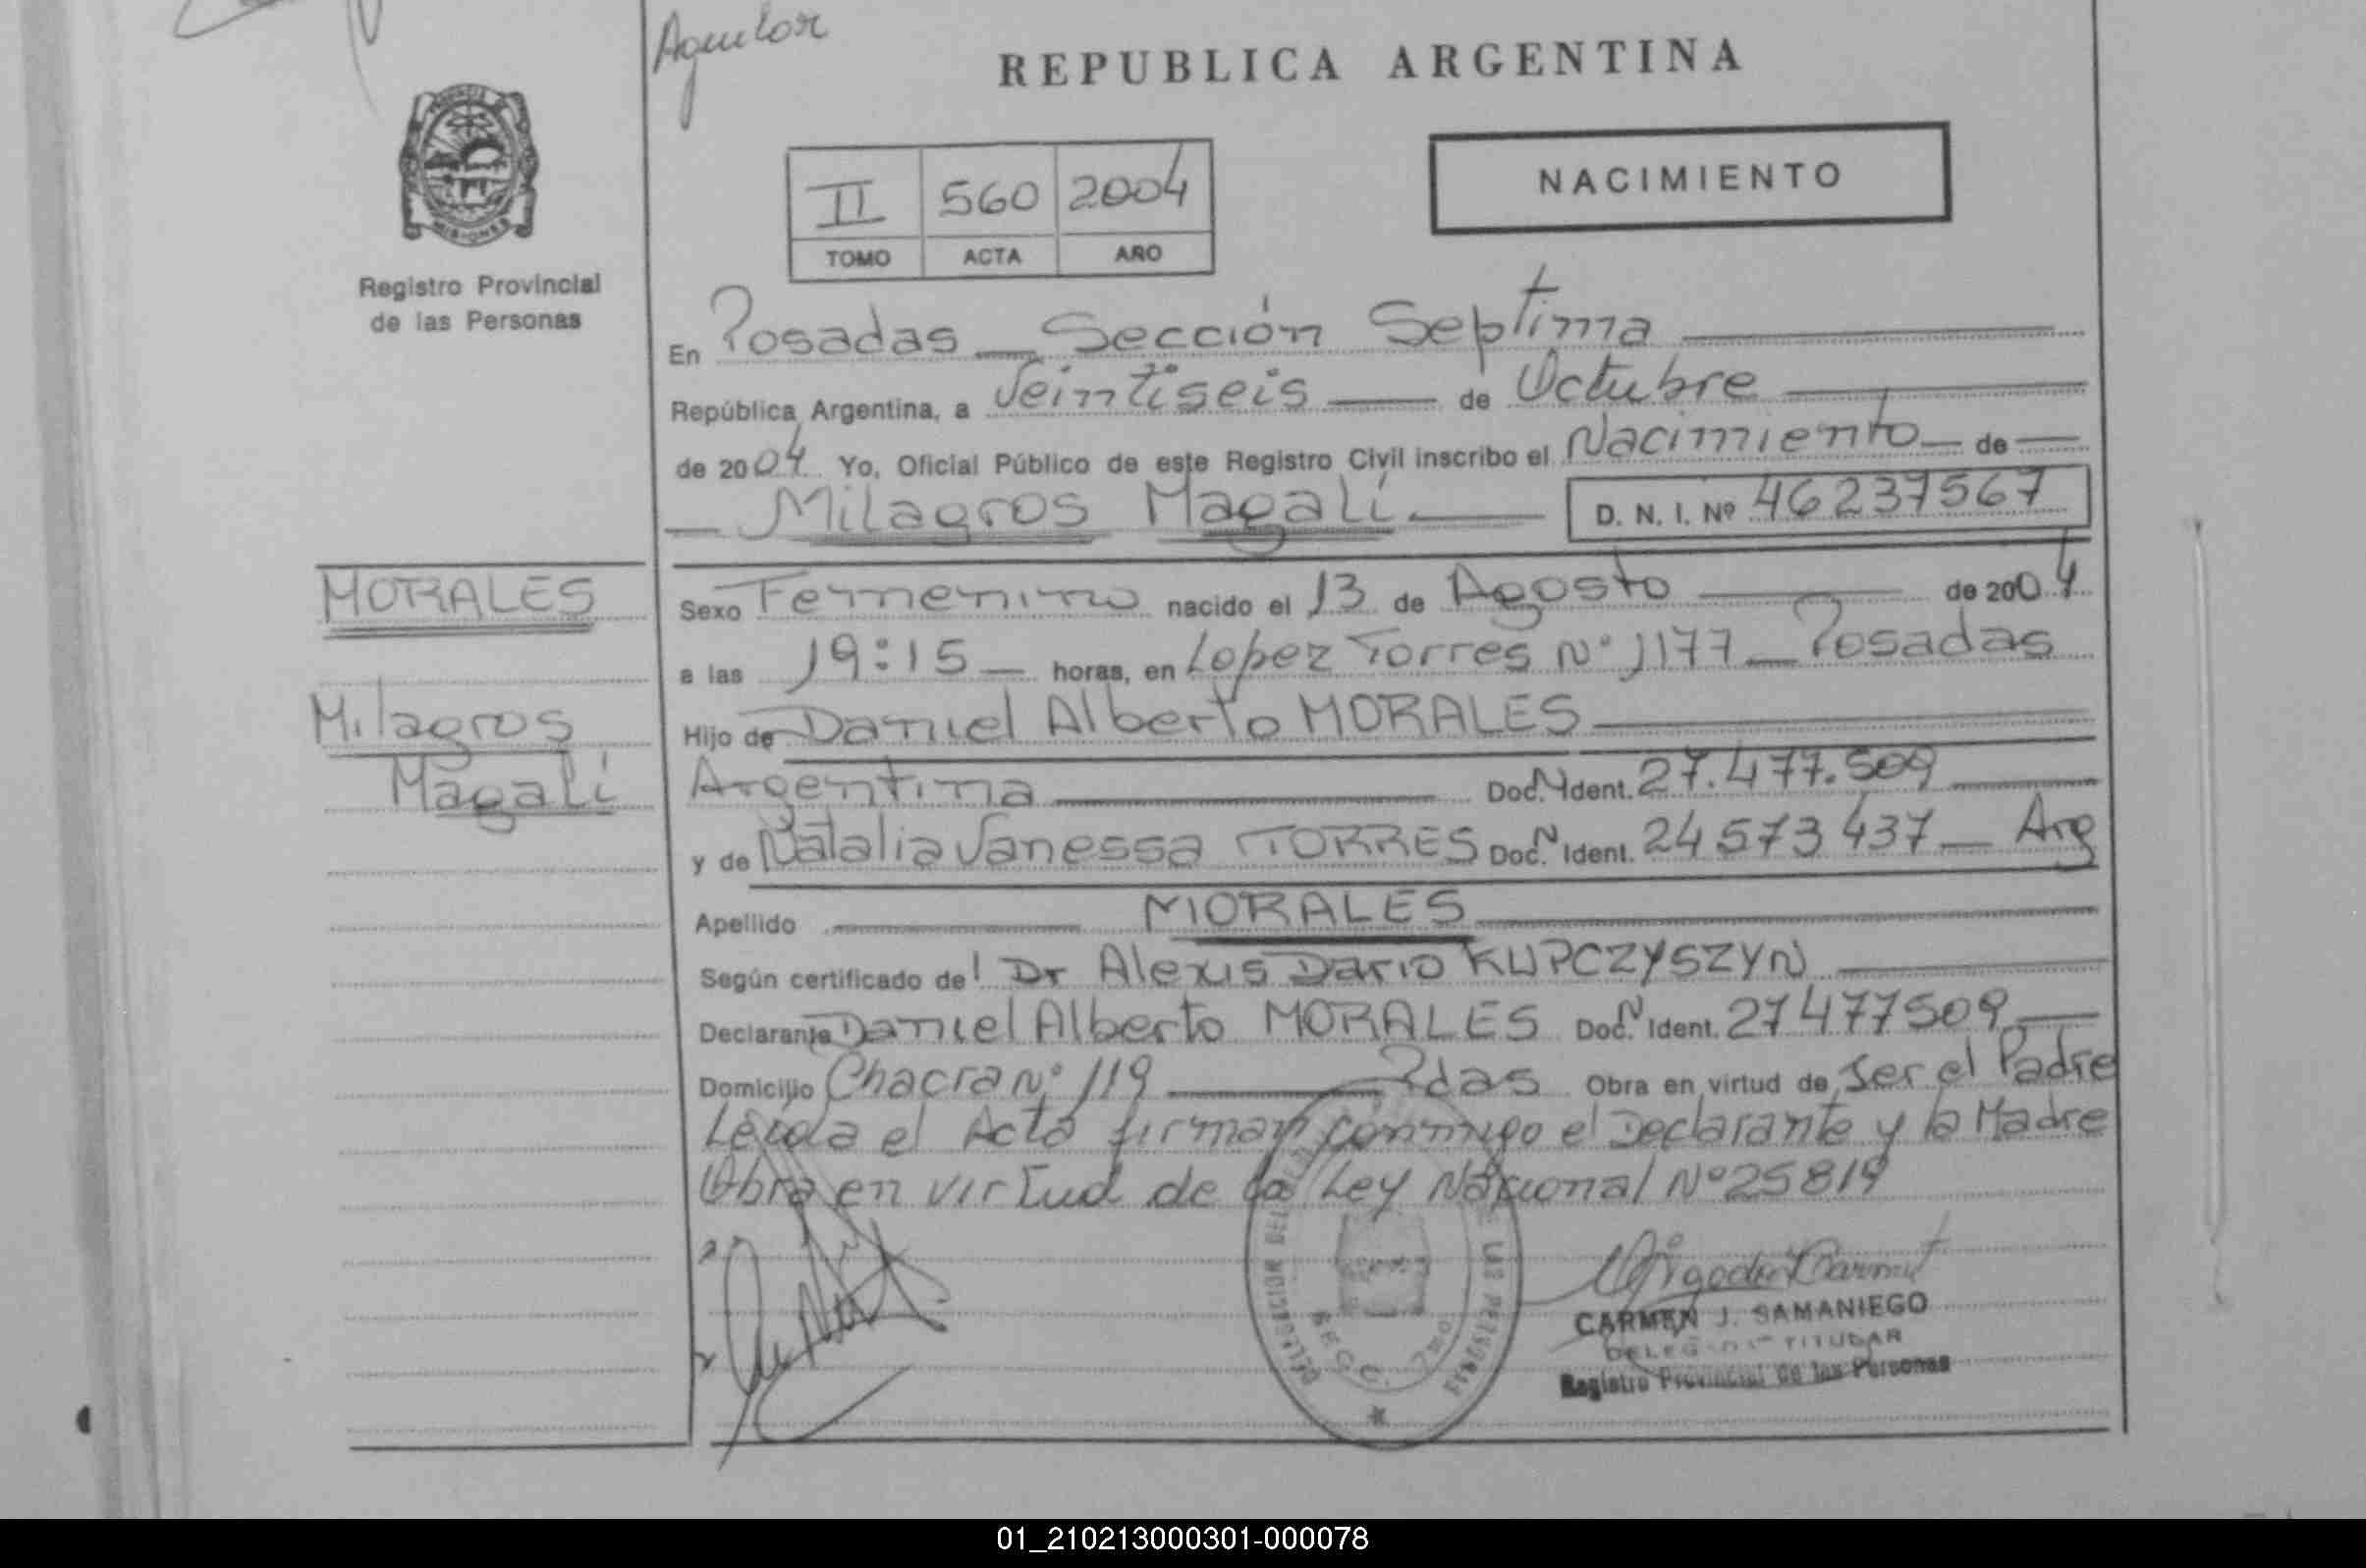 Aguilar
REPUBLICA ARGENTINA
NACIMIENTO
II 560 2004
TOMO ACTA AÑO
Registro Provincial
de las Personas
En Posadas Sección Septima
República Argentina, a Veintiseis de Octubre
de 2004 Yo, Oficial Público de este Registro Civil inscribo el Nacimiento de
Milagros Magalí D. N. I. Nº 46237567
MORALES
Milagros
Magalí
Sexo Femenino nacido el 13 de Agosto de 2004
a las 19:15 horas, en Lopez Torres Nº 1177 Posadas
Hijo de Daniel Alberto MORALES
Argentina Doc. N Ident. 27.477.509
y de Natalia Vanessa TORRES Doc. N Ident. 24573437 Arg
Apellido MORALES
Según certificado de Dr Alexis Dario KUPCZYSZYN
Declarante Daniel Alberto MORALES Doc. N Ident. 27477509
Domicilio Chacra Nº 119 Pdas Obra en virtud de Ser el Padre
Leida el Acta firman conmigo el Declarante y la Madre
Obra en virtud de la Ley Nacional Nº 25819
CARMEN J. SAMANIEGO
TITULAR
Registro Provincial de las Personas
01_210213000301-000078